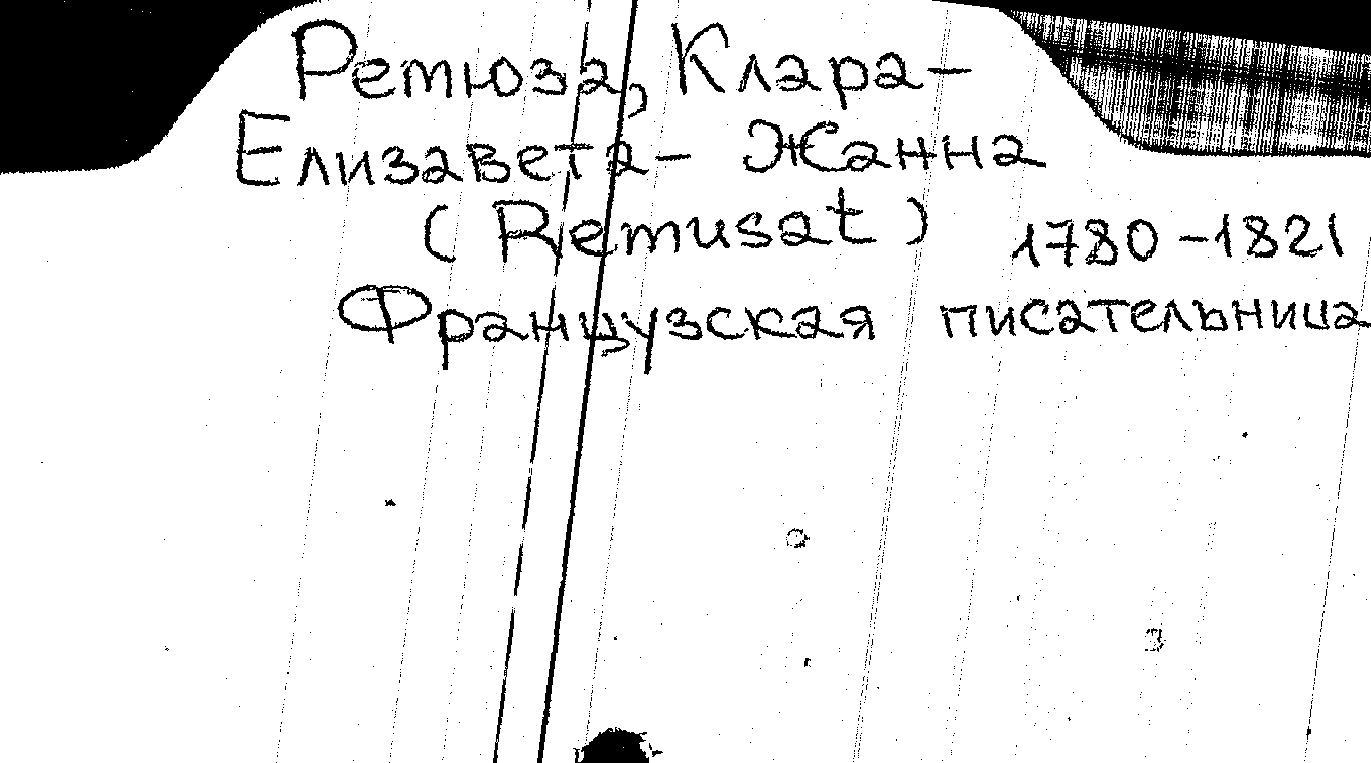 Ретюза, Клара-
Елизавета- Жанна
(Remusat) 1780-1821
Французская писательница